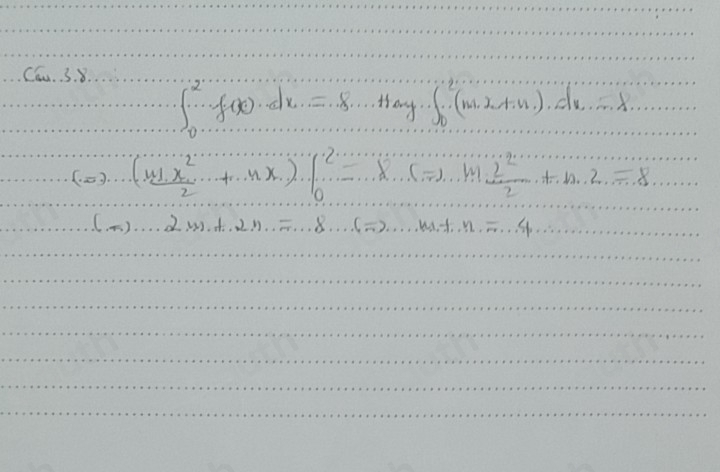 Câu 38
∫₀² f(x) dx = 8 Hay ∫₀² (mx+n) dx = 8
(=) (mx²/2 + nx) |₀² = 8 (=) m 2²/2 + n.2 = 8
(=) 2m + 2n = 8 (=) m + n = 4